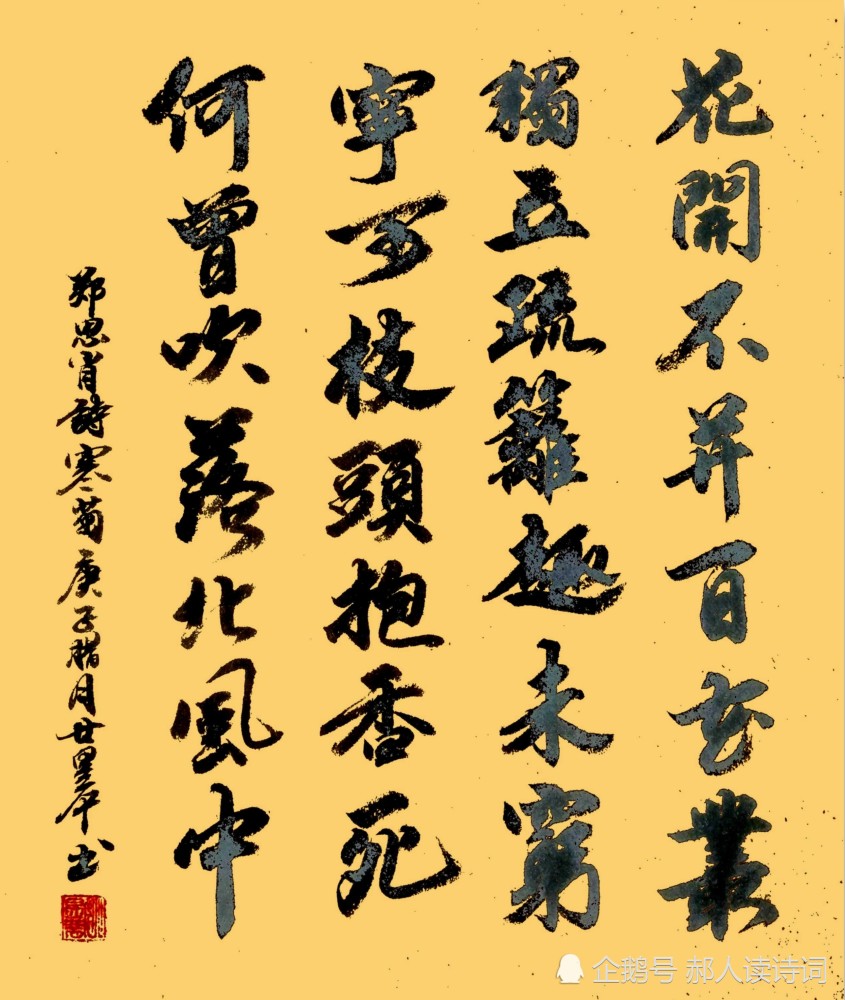 花開不并百花叢
獨立疏籬趣未窮
寧可枝頭抱香死
何曾吹落北風中
郑思肖詩寒菊庚子腊月廿墨书
企鹅号 郝人读诗词